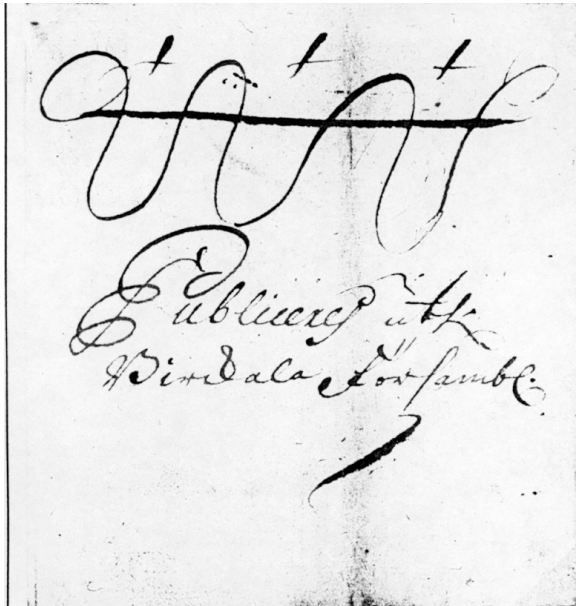 Publiceres uthi
Birckala Försambl: